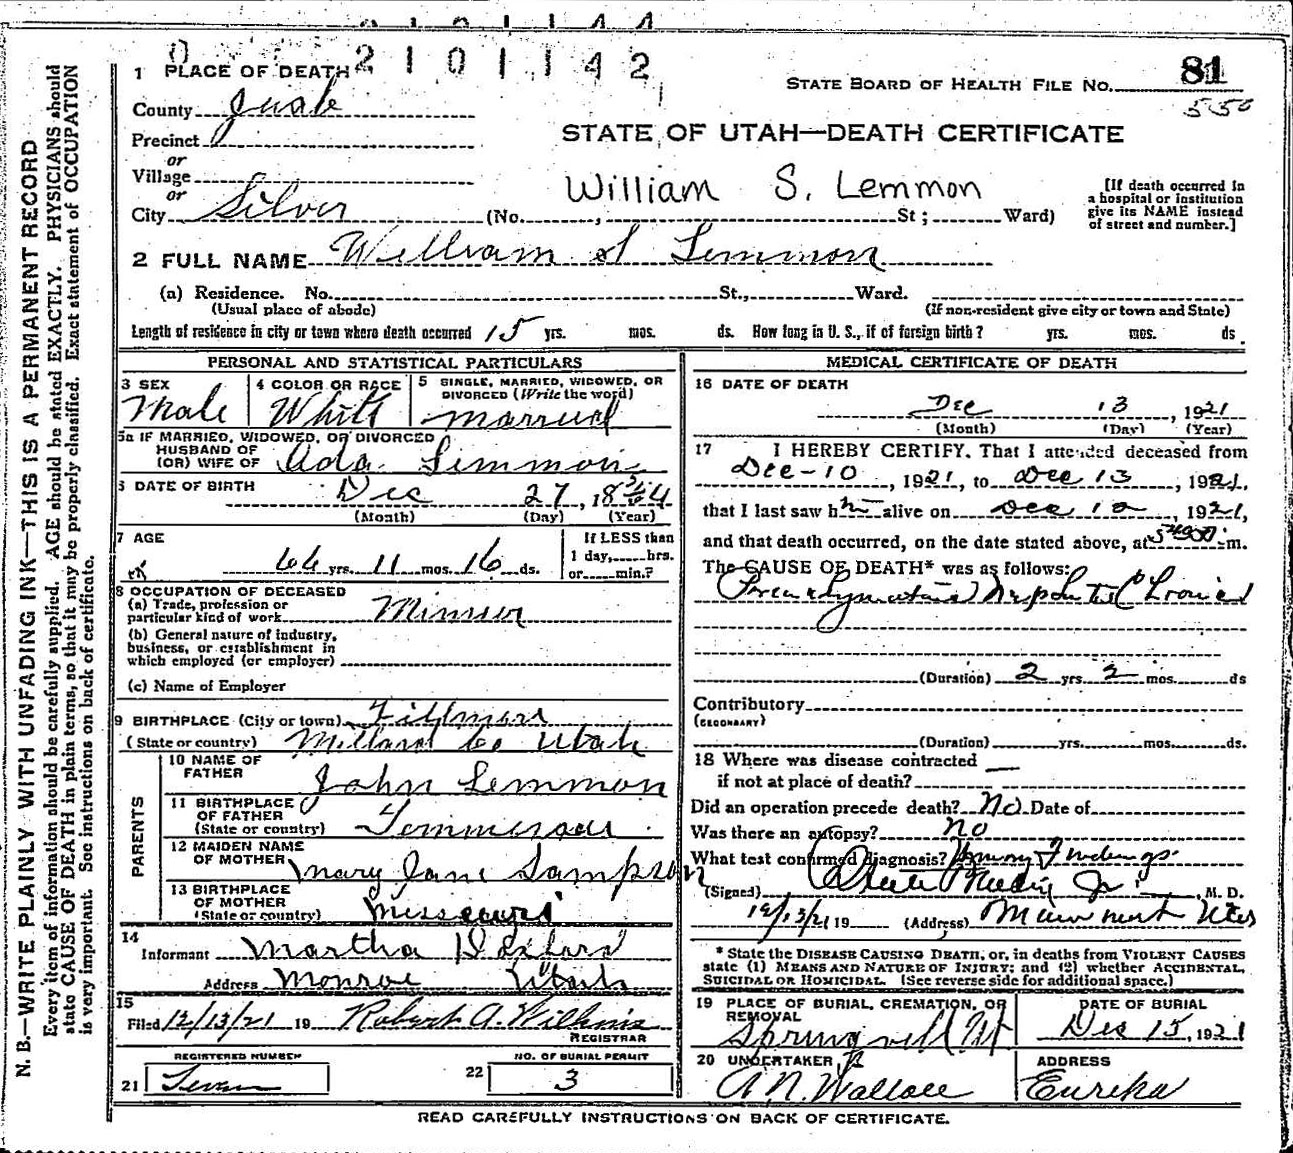 2101142
1 PLACE OF DEATH
STATE BOARD OF HEALTH FILE NO. 81
550
County Juab
Precinct
or
Village
or
City Silver (No. , St; Ward)
STATE OF UTAH—DEATH CERTIFICATE
William S. Lemmon
[If death occurred in a hospital or institution give its NAME instead of street and number.]
2 FULL NAME William S Lemmon
(a) Residence. No. St., Ward.
(Usual place of abode) (If non-resident give city or town and State)
Length of residence in city or town where death occurred 15 yrs. mos. ds. How long in U. S., if of foreign birth? yrs. mos. ds.
PERSONAL AND STATISTICAL PARTICULARS
3 SEX
Male
4 COLOR OR RACE
White
5 SINGLE, MARRIED, WIDOWED, OR
DIVORCED (Write the word)
married
5a IF MARRIED, WIDOWED, OR DIVORCED
HUSBAND OF
(OR) WIFE OF Ada Lemmon
6 DATE OF BIRTH Dec 27, 18
(Month) (Day) (Year)
7 AGE
66 yrs. 11 mos. 16 ds.
If LESS than
1 day, hrs.
or min.?
8 OCCUPATION OF DECEASED
(a) Trade, profession or
particular kind of work
(b) General nature of industry,
business, or establishment in
which employed (or employer)
(c) Name of Employer
9 BIRTHPLACE (City or town) Fillmore
(State or country) Millard Co Utah
PARENTS
10 NAME OF
FATHER John Lemmon
11 BIRTHPLACE
OF FATHER
(State or country)
12 MAIDEN NAME
OF MOTHER Mary Jane Sampson
13 BIRTHPLACE
OF MOTHER
(State or country) Missouri
14
Informant Martha
Address Monroe Utah
15
Filed 12/13/21 19 Robert A. Wilkins
REGISTRAR
REGISTERED NUMBER
21 Seven
NO. OF BURIAL PERMIT
22 3
MEDICAL CERTIFICATE OF DEATH
16 DATE OF DEATH
Dec 13, 1921
(Month) (Day) (Year)
17 I HEREBY CERTIFY, That I attended deceased from
Dec-10, 1921, to Dec 13, 1921,
that I last saw him alive on Dec 10, 1921,
and that death occurred, on the date stated above, at m.
The CAUSE OF DEATH* was as follows:
Parenchymatous Nephritis Chronic
(Duration) 2 yrs. 2 mos. ds
Contributory
(SECONDARY)
(Duration) yrs. mos. ds.
18 Where was disease contracted
if not at place of death?
Did an operation precede death? No Date of
Was there an autopsy? no
What test confirmed diagnosis? Urinary Findings
(Signed) Jr. , M. D.
12/13/21 19 (Address) Mammoth Utah
* State the DISEASE CAUSING DEATH, or, in deaths from VIOLENT CAUSES
state (1) MEANS AND NATURE OF INJURY; and (2) whether ACCIDENTAL,
SUICIDAL OR HOMICIDAL. (See reverse side for additional space.)
19 PLACE OF BURIAL, CREMATION, OR
REMOVAL
Springville Ut
DATE OF BURIAL
Dec 15, 1921
20 UNDERTAKER
A. N. Wallace
ADDRESS
Eureka
READ CAREFULLY INSTRUCTIONS ON BACK OF CERTIFICATE.
N. B.—WRITE PLAINLY WITH UNFADING INK—THIS IS A PERMANENT RECORD
Every item of information should be carefully supplied. AGE should be stated EXACTLY. PHYSICIANS should
state CAUSE OF DEATH in plain terms, so that it may be properly classified. Exact statement of OCCUPATION
is very important. See instructions on back of certificate.